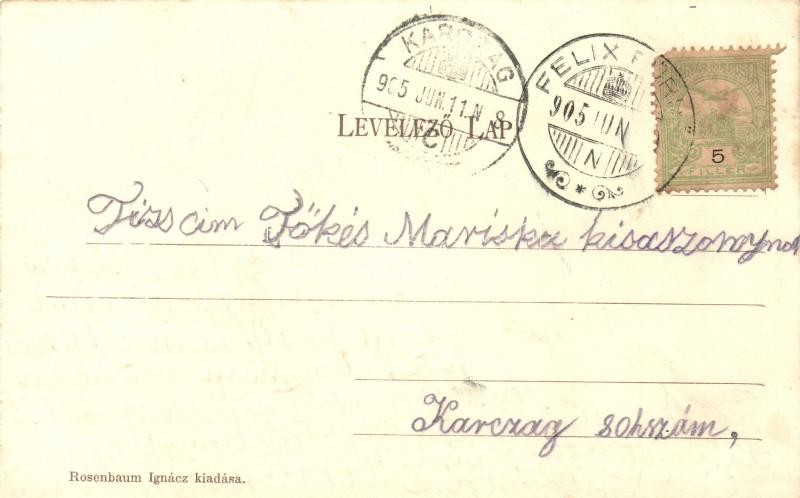 KARCZAG
905 JUN. 11. N 8
C
FELIX
905 JUN
N
MAGYAR KIR. POSTA
5
FILLÉR
LEVELEZŐ LAP
Tizs cim Tőkés Mariska kisaszonynak
Karczag sohszám,
Rosenbaum Ignácz kiadása.